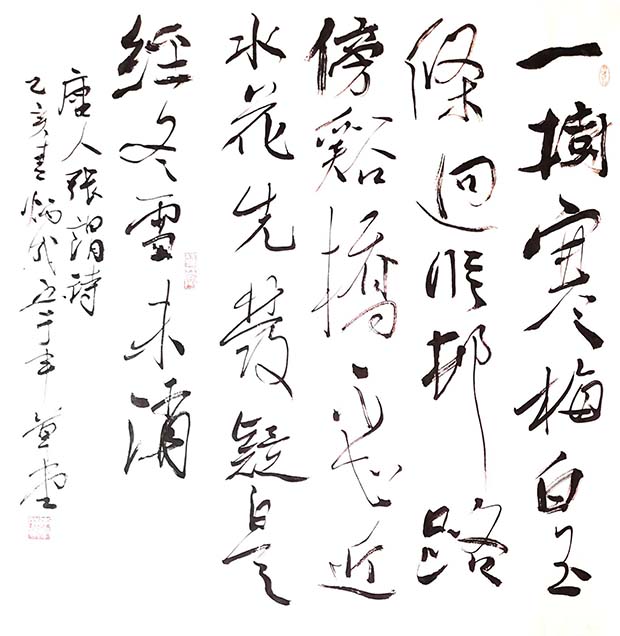 一樹寒梅白玉
條迥臨邨路
傍谿橋不知近
水花先發疑是
經冬雪未消
唐人張謂詩
乙亥春炳 草堂